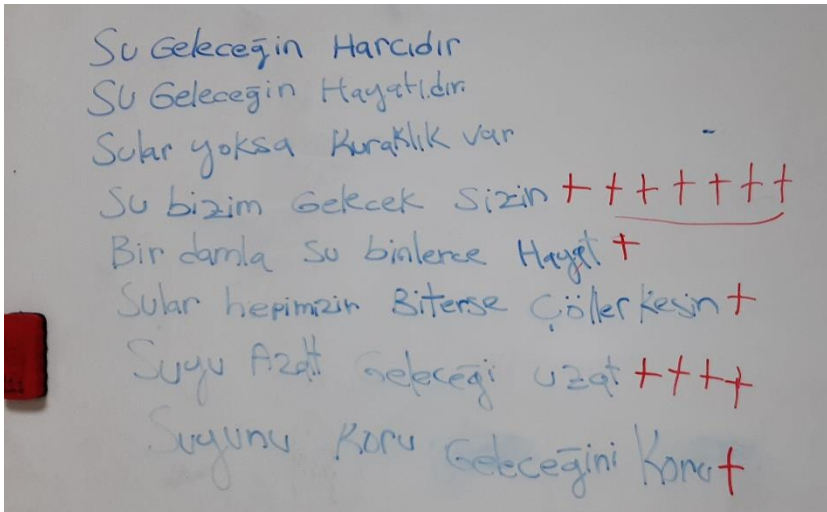 Su Geleceğin Harcıdır
Su Geleceğin Hayatıdır.
Sular yoksa Kuraklık var
Su bizim Gelecek Sizin +++++++
Bir damla su binlerce Hayat +
Sular hepimizin Biterse Çöller Kesin +
Suyu Azalt Geleceği uzat ++++
Suyunu Koru Geleceğini Koru +